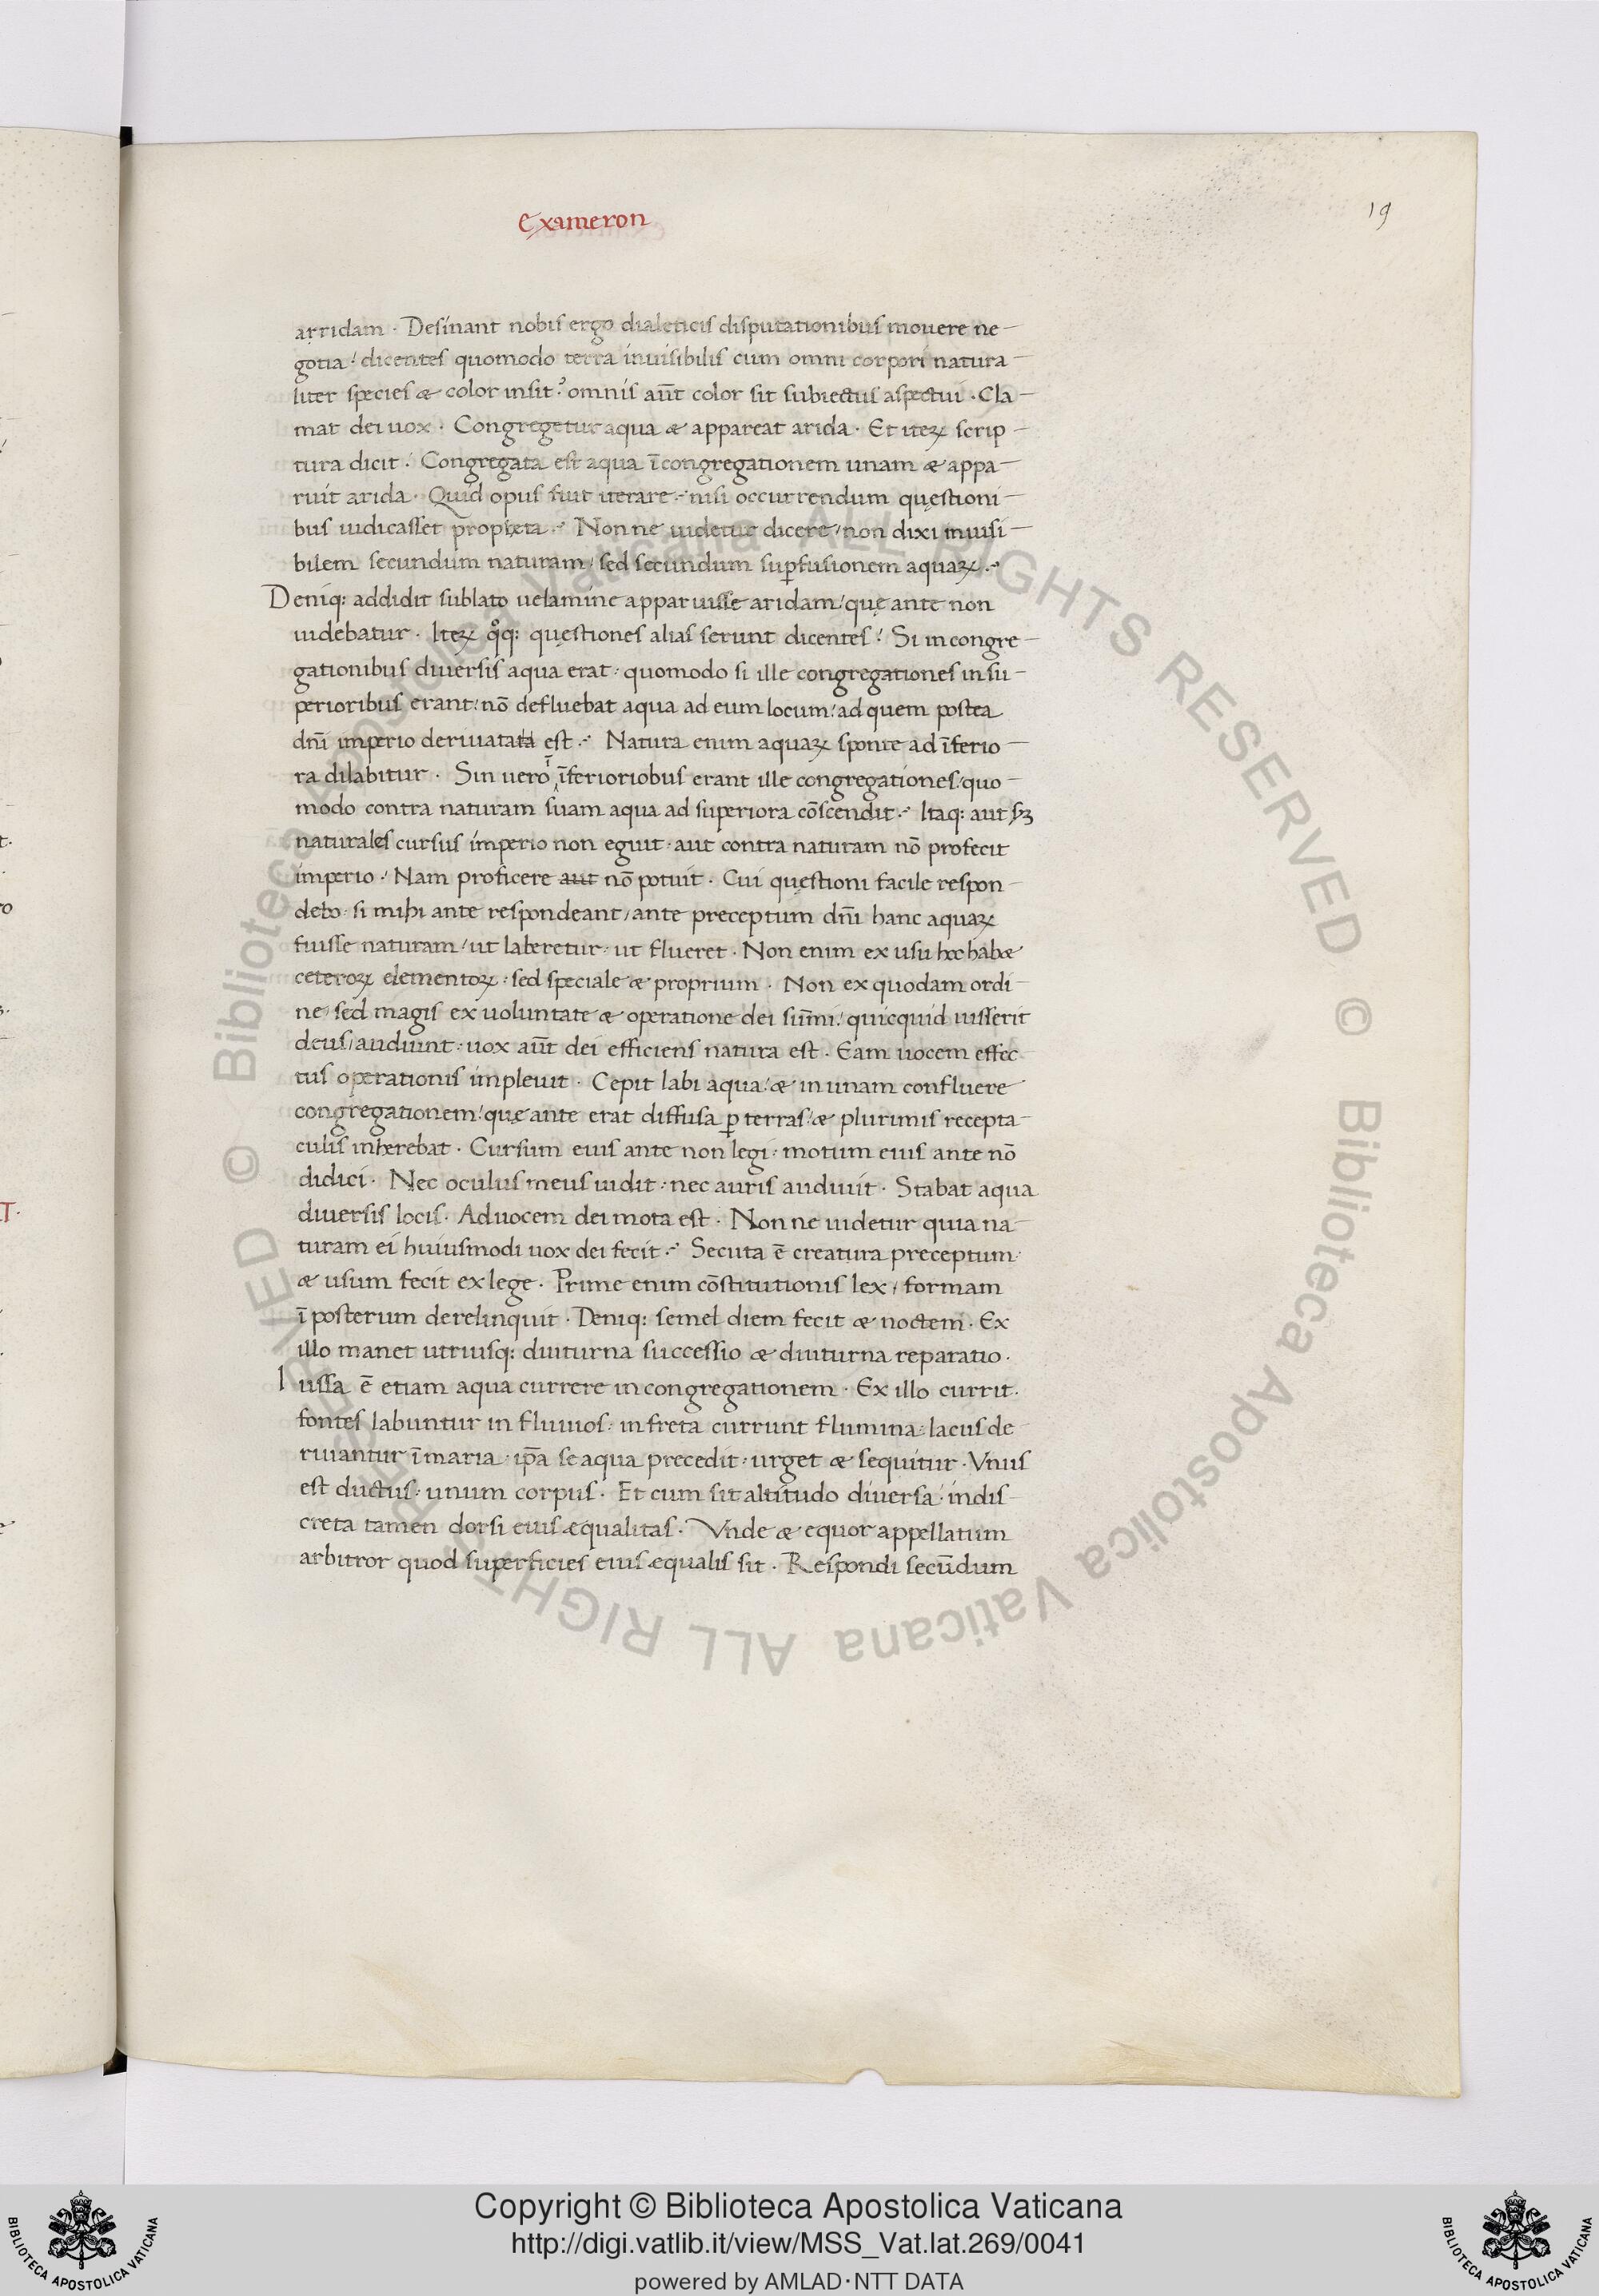 Exameron
19
arridam · Desinant nobis ergo dialeticis disputationibus mouere ne-
gotia / dicentes quomodo terra inuisibilis cum omni corpori natura-
liter species & color insit ? omnis aūt color sit subiectus aspectui · Cla-
mat dei uox · Congregetur aqua & appareat arida · Et iteꝝ scrip-
tura dicit · Congregata est aqua ī congregationem unam & appa-
ruit arida · Quid opus fuit iterare · nisi occurrendum quęstioni-
bus iudicasset propheta · Non ne uidetur dicere / non dixi inuisi-
bilem secundum naturam / sed secundum suꝑfusionem aquaꝝ ·
Deniq: addidit sublato uelamine apparuisse aridam / quę ante non
uidebatur · Iteꝝ qͦq: quęstiones alias serunt dicentes / Si in congre-
gationibus diuersis aqua erat · quomodo si ille congregationes in su-
perioribus erant / nō defluebat aqua ad eum locum / ad quem postea
dn̄i imperio deriuatata est · Natura enim aquaꝝ sponte ad īferio-
ra dilabitur · Sin uero ī īferioriobus erant ille congregationes / quo-
modo contra naturam suam aqua ad superiora cōscendit · Itaq: aut sꝫ
naturales cursus imperio non eguit · aut contra naturam nō profecit
imperio · Nam proficere aut nō potuit · Cui quęstioni facile respon-
debo · si mihi ante respondeant / ante preceptum dn̄i hanc aquaꝝ
fuisse naturam / ut laberetur · ut flueret · Non enim ex usu hoc hab&
ceteroꝝ elementoꝝ · sed speciale & proprium · Non ex quodam ordi-
ne / sed magis ex uoluntate & operatione dei sūmi / quicquid iusserit
deus / audiunt · uox aūt dei efficiens natura est · Eam uocem effec-
tus operationis impleuit · Cepit labi aqua / & in unam confluere
congregationem / quę ante erat diffusa ꝑ terras / & plurimis recepta-
culis inherebat · Cursum eius ante non legi · motum eius ante nō
didici · Nec oculus meus uidit · nec auris audiuit · Stabat aqua
diuersis locis · Ad uocem dei mota est · Non ne uidetur quia na-
turam ei huiusmodi uox dei fecit · Secuta ē creatura preceptum ·
& usum fecit ex lege · Prime enim cōstitutionis lex / formam
ī posterum derelinquit · Deniq: semel diem fecit & noctem · Ex
illo manet utriusq: diuturna successio & diuturna reparatio ·
Iussa ē etiam aqua currere in congregationem · Ex illo currit ·
fontes labuntur in fluuios · in freta currunt flumina · lacus de-
riuantur ī maria · ip̄a se aqua precedit · urget & sequitur · Vnus
est ductus · unum corpus · Et cum sit altitudo diuersa / indis-
creta tamen dorsi eius ęqualitas · Vnde & equor appellatum
arbitror quod superficies eius ęqualis sit · Respondi secūdum
© Biblioteca Apostolica Vaticana ALL RIGHTS RESERVED
© Biblioteca Apostolica Vaticana ALL RIGHTS RESERVED
BIBLIOTECA APOSTOLICA VATICANA
Copyright © Biblioteca Apostolica Vaticana
http://digi.vatlib.it/view/MSS_Vat.lat.269/0041
powered by AMLAD·NTT DATA
BIBLIOTECA APOSTOLICA VATICANA